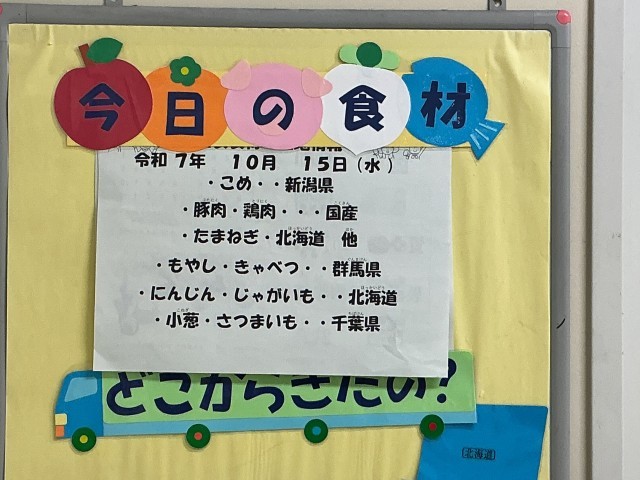 今日の食材
令和7年 10月 15日(水)
・こめ・・新潟県
・豚肉・鶏肉・・・国産
・たまねぎ・北海道 他
・もやし・きゃべつ・・群馬県
・にんじん・じゃがいも・・北海道
・小葱・さつまいも・・千葉県
どこからきたの?
北海道